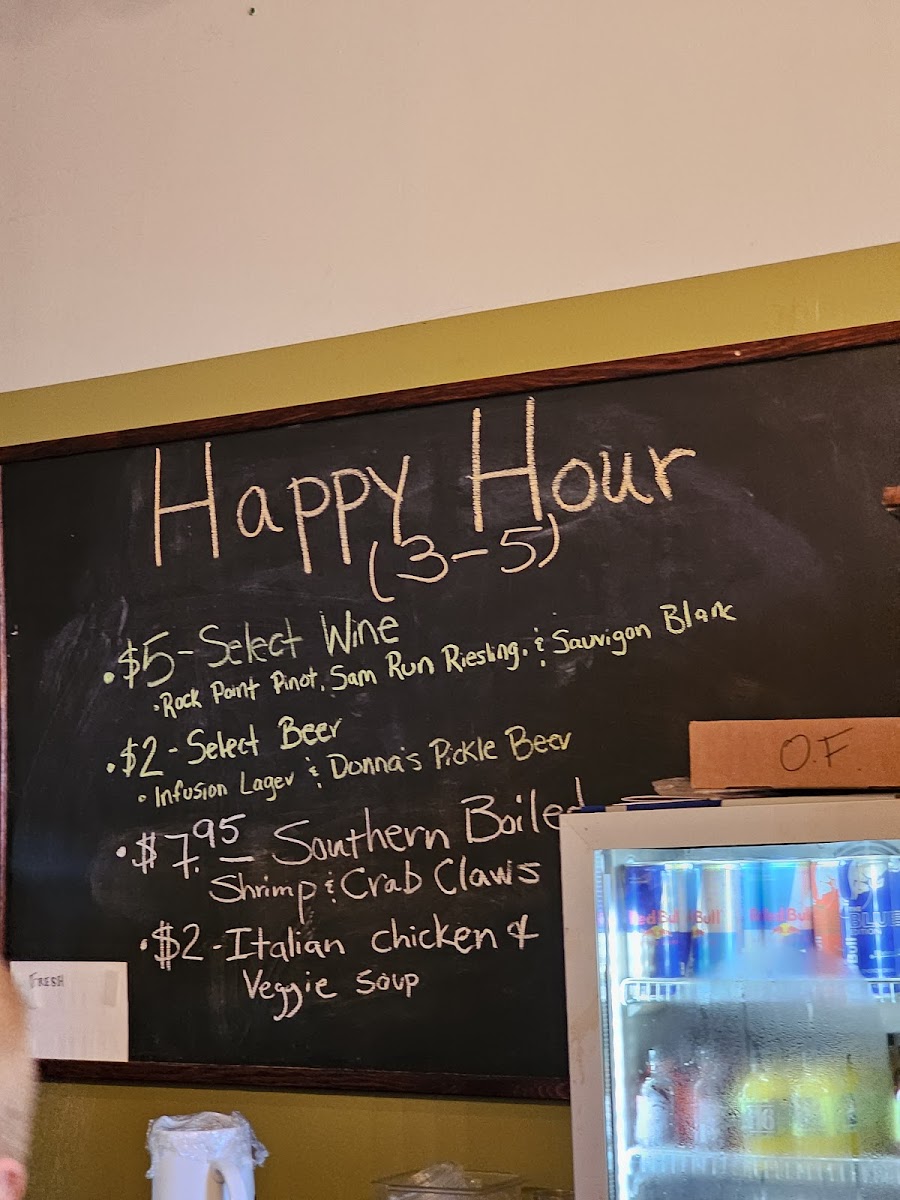 Happy Hour
(3-5)
•$5-Select Wine
•Rock Point Pinot, Sam Run Riesling, & Sauvigon Blanc
•$2-Select Beer
•Infusion Lager & Donna's Pickle Beer
•$7.95 - Southern Boiled
Shrimp & Crab Claws
•$2-Italian chicken &
Veggie Soup
O.F.
FRESH
Red Bull
Bull
Red Bull
Bull
BLUE
EDITION